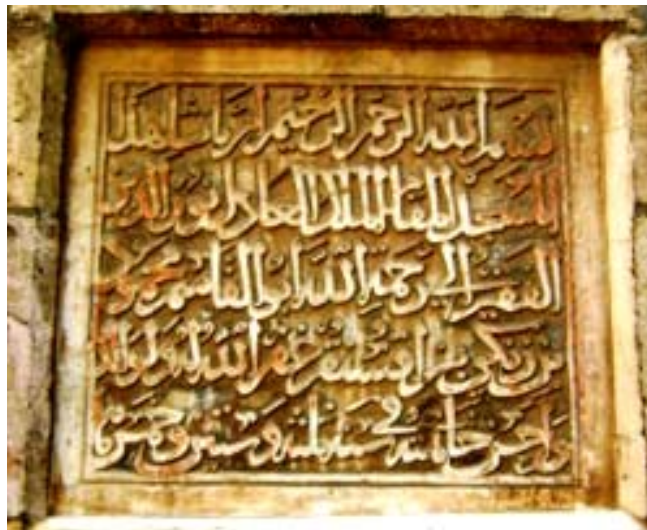 بسم الله الرحمن الرحيم امر بانشا هذا
المسجد المقام الملك العادل نور الدين
الفقير الى رحمة الله ابو القاسم محمود
بن زنكي بن اق سنقر غفر الله له ولوالديه
واحسن خاتمته في سنة ثلثة وستين وخمس